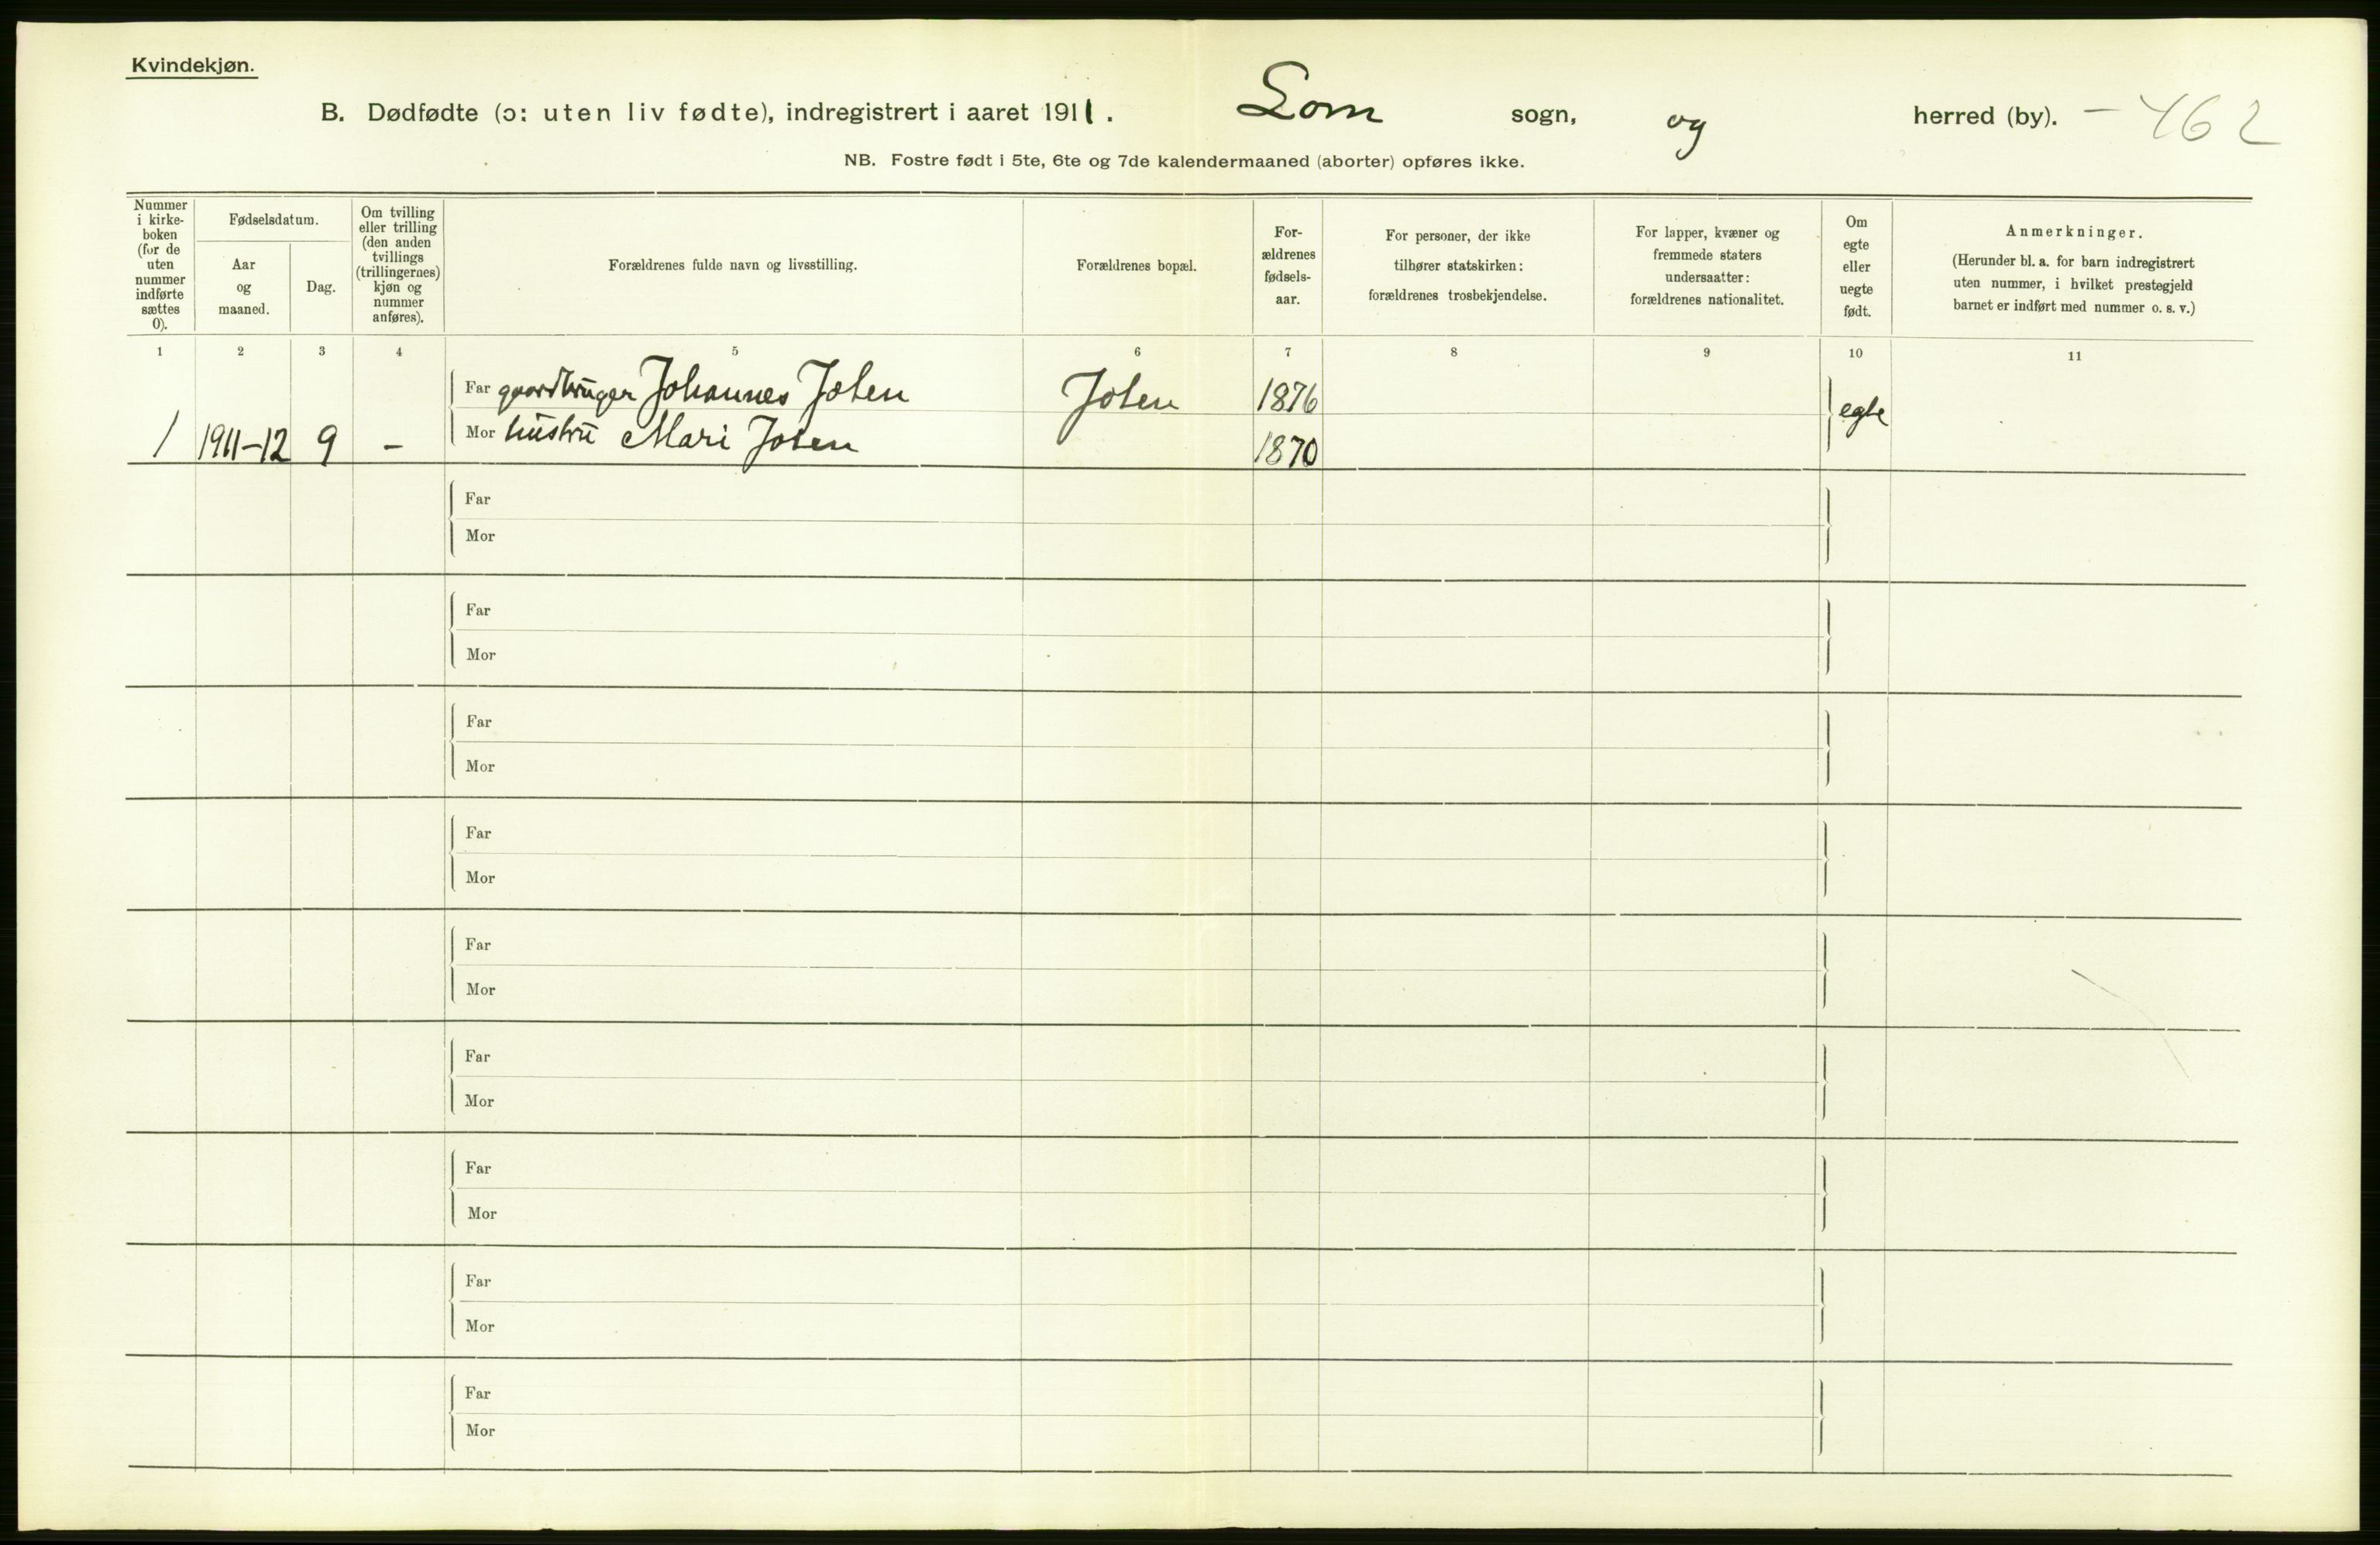 Kvindekjøn.
B. Dødfødte (ɔ: uten liv fødte), indregistrert i aaret 1911. Lom sogn, og herred (by). – 462
NB. Fostre født i 5te, 6te og 7de kalendermaaned (aborter) opføres ikke.
Nummer
i kirke-
boken
(for de
uten
nummer
indførte
sættes
0).
Fødselsdatum.
Aar
og
maaned.
Dag.
Om tvilling
eller trilling
(den anden
tvillings
(trillingernes)
kjøn og
nummer
anføres).
Forældrenes fulde navn og livsstilling.
Forældrenes bopæl.
For-
ældrenes
fødsels-
aar.
For personer, der ikke
tilhører statskirken:
forældrenes trosbekjendelse.
For lapper, kvæner og
fremmede staters
undersaatter:
forældrenes nationalitet.
Om
egte
eller
uegte
født.
Anmerkninger.
(Herunder bl. a. for barn indregistrert
uten nummer, i hvilket prestegjeld
barnet er indført med nummer o. s. v.)
1 2 3 4 5 6 7 8 9 10 11
Far gaardbruger Johannes Joten Joten 1876 egte
1 1911-12 9 – Mor hustru Mari Joten 1870
Far
Mor
Far
Mor
Far
Mor
Far
Mor
Far
Mor
Far
Mor
Far
Mor
Far
Mor
Far
Mor